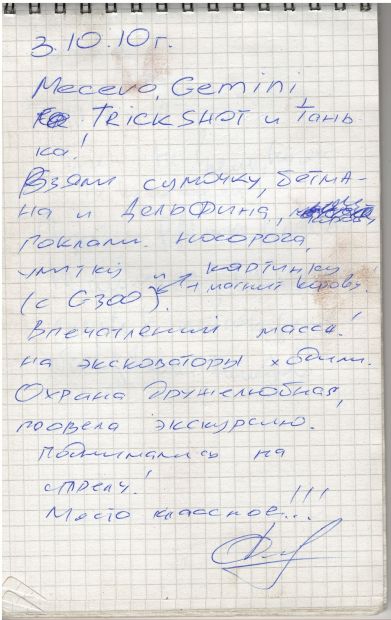 3.10.10г.
Месево, Gemini
TRICKSHOT и Тань
ка!
Взяли сумочку, бетмэ-
на и Дельфина,
поклали носорога,
улитку и картинку
(с G300). + магнит корову.
Впечатлений масса!
на экскаваторы ходили.
Охрана дружелюбная,
провела экскурсию.
поднимались на
стрелу!
Место классное!!!